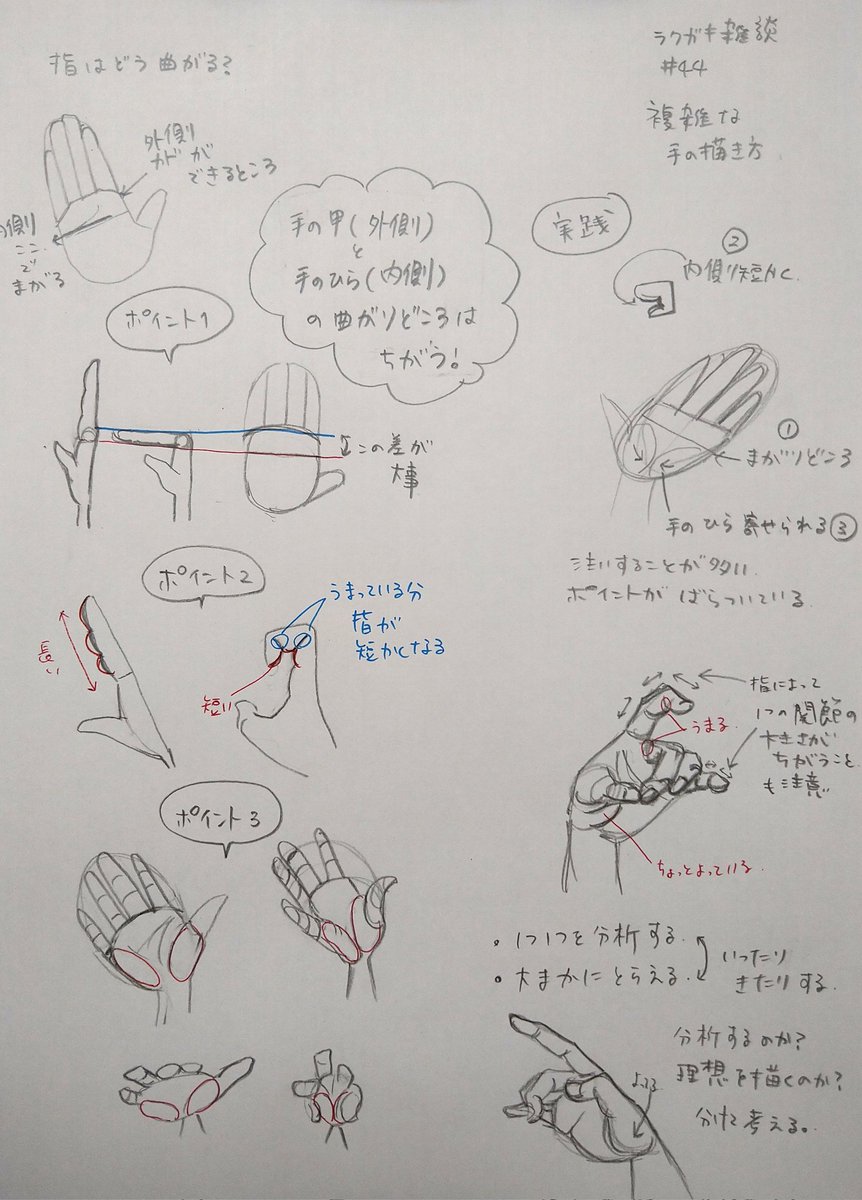 ラクガキ雑談
#44
複雑な
手の描き方
指はどう曲がる?
外側
カドが
できるところ
内側
ここ
で
まがる
手の甲(外側)
と
手のひら(内側)
の曲がりどころは
ちがう!
ポイント1
この差が
大事
ポイント2
長い
短い
うまっている分
指が
短かくなる
ポイント3
実践
②
内側り短かく.
①
まがりどころ
手のひら寄せられる③
注いすることが多い.
ポイントがばらついている.
指によって
1つの関節の
大きさが
ちがうこと
も注意
うまる.
ちょっとよっている.
• 1つ1つを分析する.
• 大まかにとらえる.
いったり
きたりする.
分析するのか?
理想を描くのか?
分けて考える。
よる